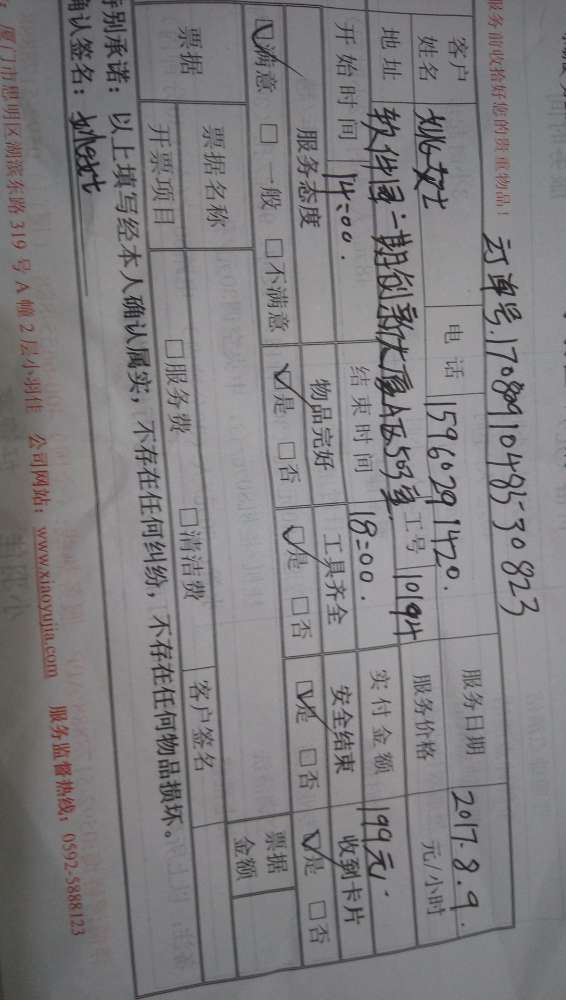 服务前收拾好您的贵重物品！
订单号.1708091048530823
客户姓名 姚女士 电话 15960291420. 服务日期 2017.8.9.
地址 软件园二期创新大厦A区503室. 工号 10194 服务价格 元/小时
开始时间 14:00. 结束时间 18:00. 实付金额 199元.
服务态度 物品完好 工具齐全 安全结束 收到卡片
☑满意 □一般 □不满意 ☑是 □否 ☑是 □否 ☑是 □否 ☑是 □否
票据 票据名称 □服务费 □清洁费 票据金额
开票项目 客户签名
特别承诺：以上填写经本人确认属实，不存在任何纠纷，不存在任何物品损坏。
确认签名：
厦门市思明区湖滨东路 319 号 A 幢 2 层小羽佳 公司网站：www.xiaoyujia.com 服务监督热线：0592-5888123